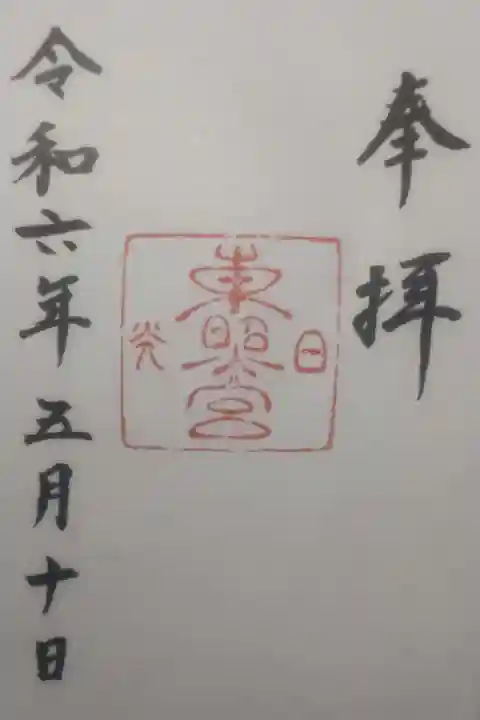 奉拝
日光
東照宮
令和六年五月十日